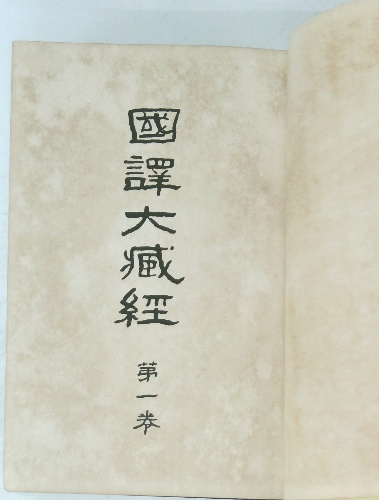 國譯大藏經
第一卷